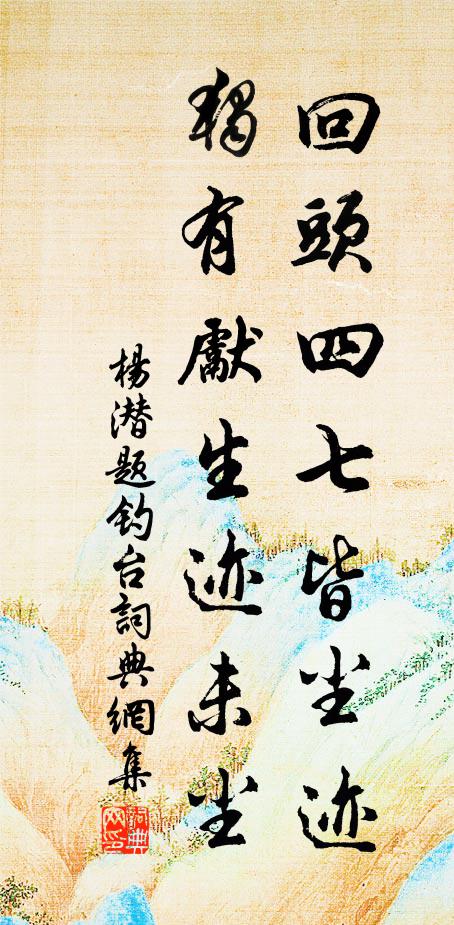 回頭四七皆尘迹
獨有獻生迹未尘
楊潜题钓台詞典網集
詞典网印